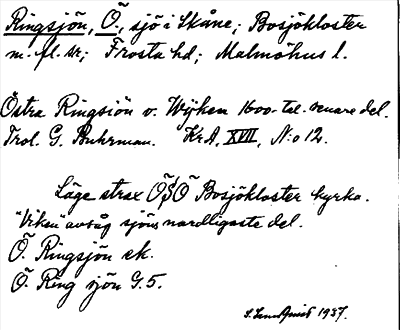 Ringsjön, Ö., sjö i Skåne; Bosjökloster
m. fl. sr; Frosta hd; Malmöhus l.
Östra Ringsiön v. Wijken 1600-tal. senare del.
Trol. G. Buhrman. KrA, XVII, N:o 12.
Läge strax ÖSÖ Bosjökloster kyrka.
"Viken" avsåg sjöns nordligaste del.
Ö. Ringsjön ek.
Ö. Ring sjön G.5.
1937.